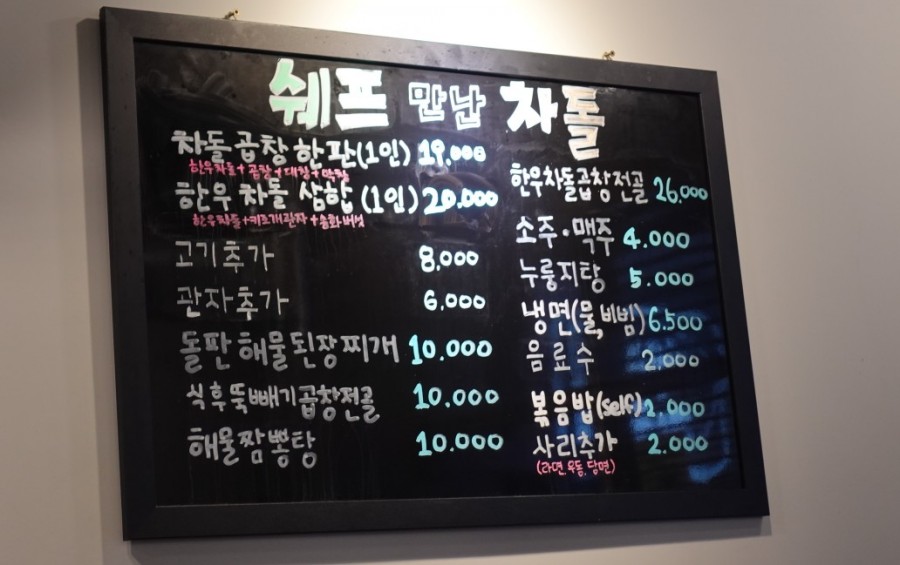 쉐프 만난 차돌
차돌곱창한판(1인) 19,000
한우차돌+곱창+대창+막창
한우차돌삼합(1인) 20.000
한우차돌+키조개관자+송화버섯
고기추가 8,000
관자추가 6,000
돌판해물된장찌개 10.000
식후뚝빼기곱창전골 10.000
해물짬뽕탕 10.000
한우차돌곱창전골 26,000
소주·맥주 4.000
누룽지탕 5.000
냉면(물,비빔) 6.500
음료수 2,000
볶음밥(self) 2.000
사리추가 2.000
(라면.우동.당면)